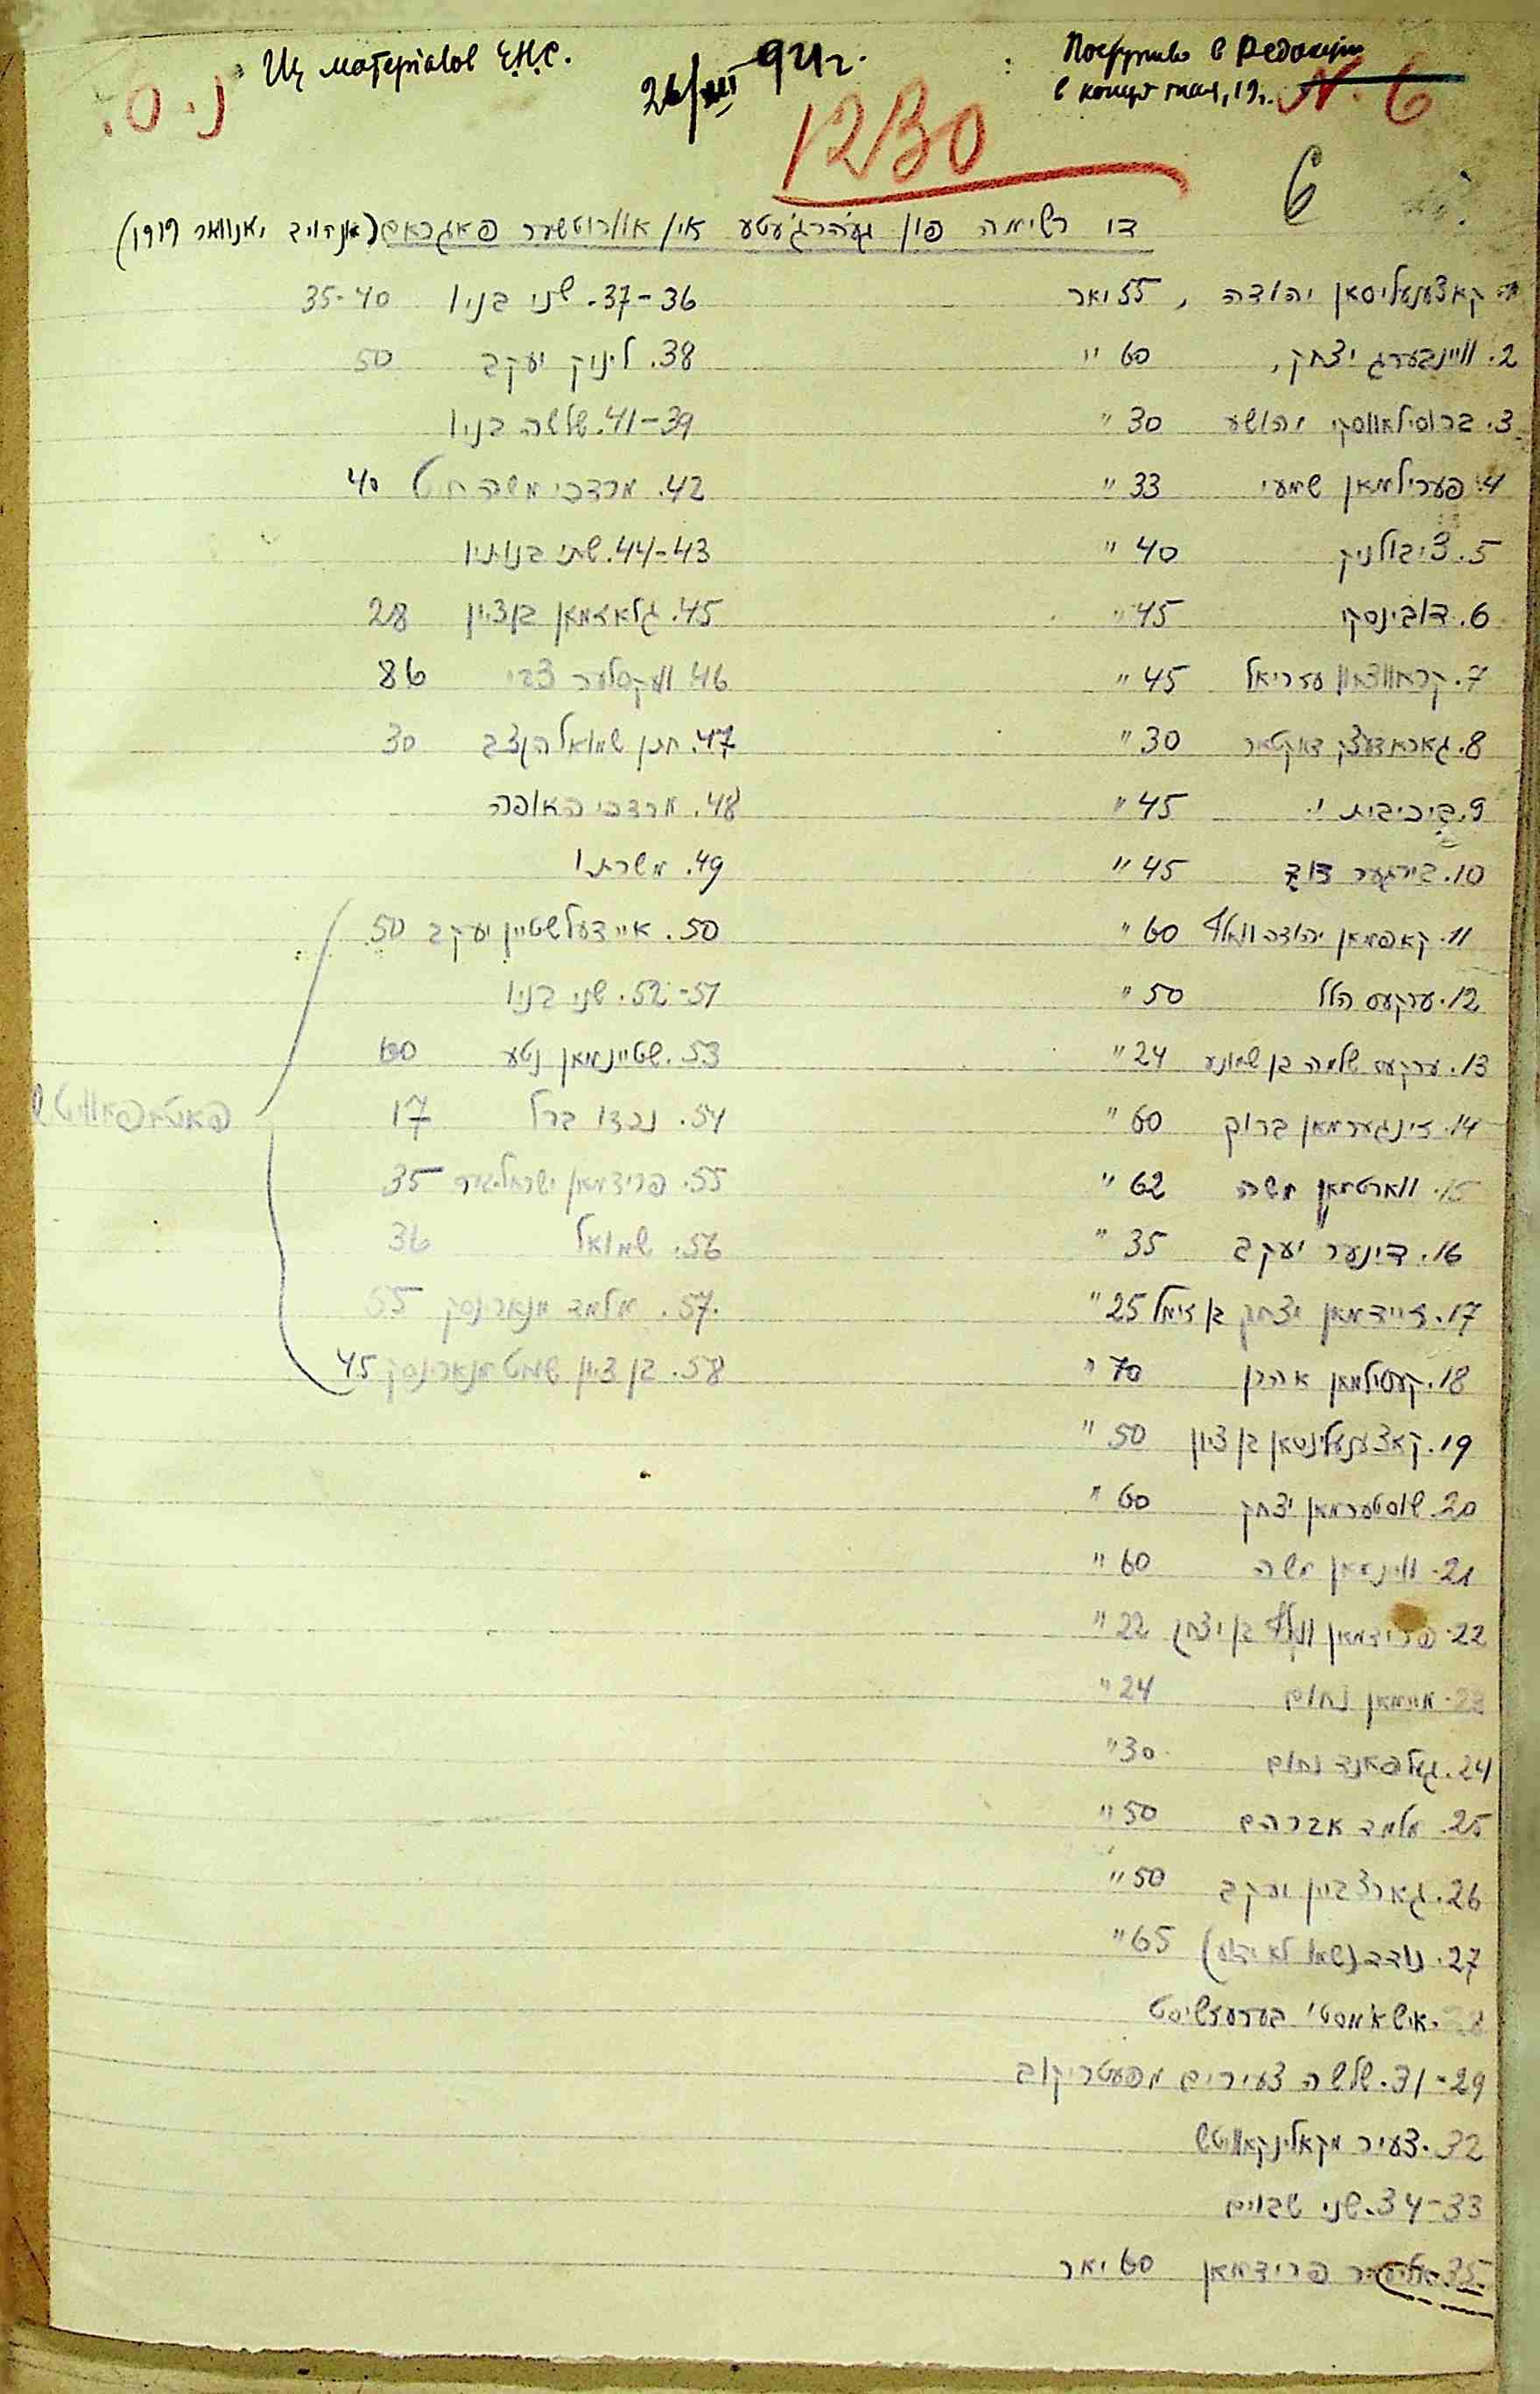 Из матеріалов Е.Н.С.
26/XII 921 г.
Поступило в Редакцію
в конце мая, 19
נ. ס.
N. 6
1230
6
די רשימה פון געהרג'עטע אין אוורוטשער פאגראם (אנהויב יאנואר 1919)
קאצענעלסאן יהודה, 55 יאר
2. וויינבערג יצחק, 60 "
3. ברוסילאווסקי יהושע 30 "
4. פערילמאן שמעי 33 "
5. ציבולניק 40 "
6. דובינסקי 45 "
7. קראווצאוו עזריאל 45 "
8. גאראדעצקי דאקטאר 30 "
9. 45 "
10. בירגער דוד 45 "
11. קאפמאן יהודה וואלף 60 "
12. ערקעס הלל 50 "
13. ערקעס שלמה בן שמונע 24 "
14. זינגערמאן ברוך 60 "
15. ווארטמאן משה 62 "
16. דינער יעקב 35 "
17. זיידמאן יצחק בן זימל 25 "
18. קעסילמאן אהרן 70 "
19. קאצענעלינסאן בן ציון 50 "
20. שוסטערמאן יצחק 60 "
21. ווינמאן משה 60 "
22. פרידמאן וואלף בן יצחק 22 "
23. נחום 24 "
24. געלפאנד נחום 30 "
25. מלמד אברהם 50 "
26. יעקב 50 "
27. נודד (שמו לא ידוע) 65 "
28. איש
29-31. שלשה צעירים מפעטריקוב
32. צעיר מקאלינקאוויטש
33-34. שני שבוים
35. פרידמאן 60 יאר
36-37. שני בניו 35-40
38. לינוק יעקב 50
39-41. שלשה בניו
42. מרדכי משה חייט 40
43-44. שתי בנותיו
45. גלאזמאן בן ציון 28
46. וועקסלער צבי 86
47. חתן שמואל הקצב 30
48. מרדכי האופה
49. משרתו
50. איידעלשטיין יעקב 50
51-52. שני בניו
53. שטיינמאן נטע 60
54. נכדו ברל 17
55. פרידמאן ישראל מאיר 35
56. שמואל 36
57. מלמד מנארינסק 55
58. בן ציון שוחט מנארינסק 45